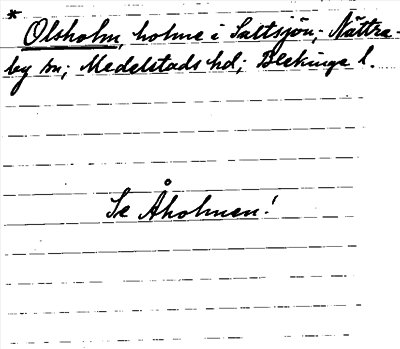 * Olsholm, holme i Saltsjön; Nättra-
by sn; Medelstads hd; Blekinge l.
Se Åholmen!